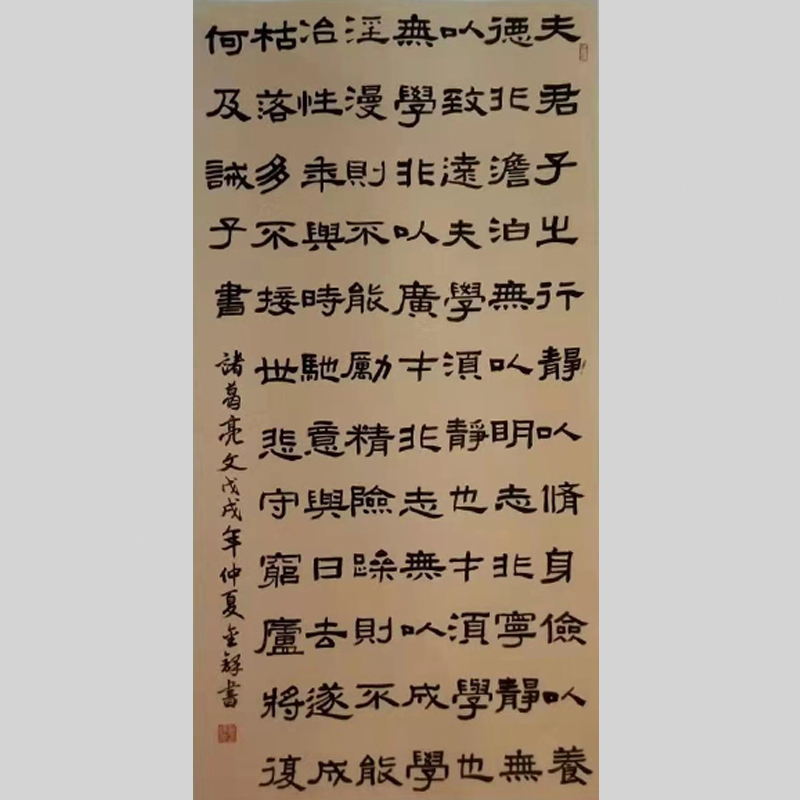 夫君子之行靜以脩身儉以養
德非澹泊無以明志非寧靜無
以致遠夫學須靜也才須學也
無學非以廣才非志無以成學
淫漫則不能勵精險躁則不能
冶性年與時馳意與日去遂成
枯落多不接世悲守窮廬將復
何及誡子書
諸葛亮文戊戌年仲夏金錚書